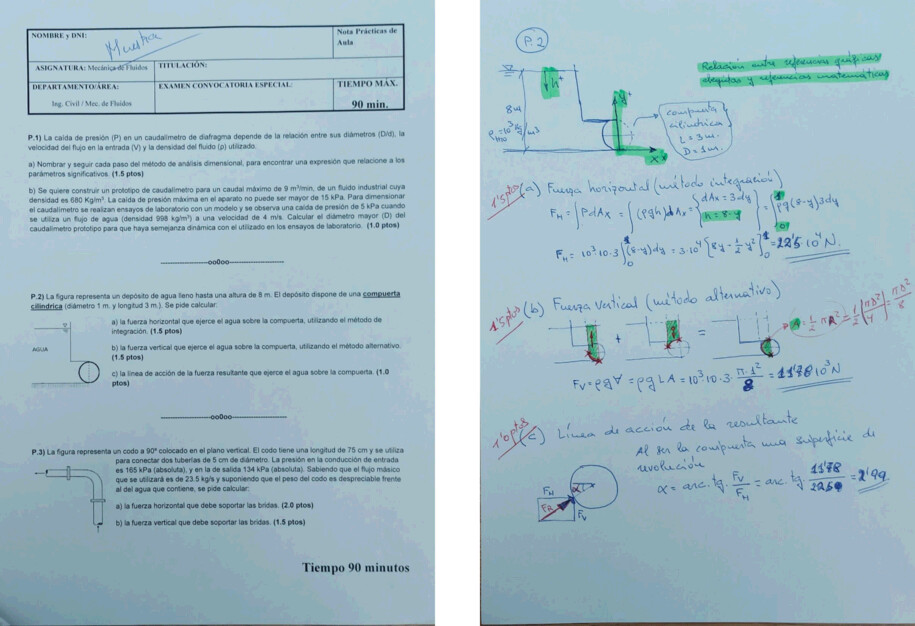 NOMBRE y DNI:
Muestra
Nota Prácticas de
Aula
ASIGNATURA: Mecánica de Fluidos
TITULACIÓN:
DEPARTAMENTO/ÁREA:
EXAMEN CONVOCATORIA ESPECIAL:
TIEMPO MÁX.
Ing. Civil / Mec. de Fluidos
90 min.
P.1) La caída de presión (P) en un caudalímetro de diafragma depende de la relación entre sus diámetros (D/d), la
velocidad del flujo en la entrada (V) y la densidad del fluido (ρ) utilizado.
a) Nombrar y seguir cada paso del método de análisis dimensional, para encontrar una expresión que relacione a los
parámetros significativos. (1.5 ptos)
b) Se quiere construir un prototipo de caudalímetro para un caudal máximo de 9 m³/min, de un fluido industrial cuya
densidad es 680 Kg/m³. La caída de presión máxima en el aparato no puede ser mayor de 15 kPa. Para dimensionar
el caudalímetro se realizan ensayos de laboratorio con un modelo y se observa una caída de presión de 5 kPa cuando
se utiliza un flujo de agua (densidad 998 kg/m³) a una velocidad de 4 m/s. Calcular el diámetro mayor (D) del
caudalímetro prototipo para que haya semejanza dinámica con el utilizado en los ensayos de laboratorio. (1.0 ptos)
----ooOoo----
P.2) La figura representa un depósito de agua lleno hasta una altura de 8 m. El depósito dispone de una compuerta
cilíndrica (diámetro 1 m. y longitud 3 m.). Se pide calcular:
a) la fuerza horizontal que ejerce el agua sobre la compuerta, utilizando el método de
integración. (1.5 ptos)
AGUA
b) la fuerza vertical que ejerce el agua sobre la compuerta, utilizando el método alternativo.
(1.5 ptos)
c) la línea de acción de la fuerza resultante que ejerce el agua sobre la compuerta. (1.0
ptos)
----ooOoo----
P.3) La figura representa un codo a 90º colocado en el plano vertical. El codo tiene una longitud de 75 cm y se utiliza
para conectar dos tuberías de 5 cm de diámetro. La presión en la conducción de entrada
es 165 kPa (absoluta), y en la de salida 134 kPa (absoluta). Sabiendo que el flujo másico
que se utilizará es de 23.5 kg/s y suponiendo que el peso del codo es despreciable frente
al del agua que contiene, se pide calcular:
a) la fuerza horizontal que debe soportar las bridas. (2.0 ptos)
b) la fuerza vertical que debe soportar las bridas. (1.5 ptos)
Tiempo 90 minutos
P.2
Relación entre referencias gráficas
elegidas y referencias matemáticas
h⁺
y⁺
8m
x⁺
compuerta
cilíndrica
L = 3 m.
D = 1 m.
1'5 ptos (a) Fuerza horizontal (método integración)
F_H = ∫ P dAx = ∫ (ρgh) dAx = { dAx = 3dy / h = 8-y } = ∫₀¹ ρg(8-y)3dy
F_H = 10³·10·3 ∫₀¹ (8-y)dy = 3·10⁴ [8y - ½y²]₀¹ = 22'5·10⁴ N.
1'5 ptos (b) Fuerza vertical (método alternativo)
+ =
F_V = ρg∀ = ρg L A = 10³·10·3·π·1²/8 = 11'78·10³ N
1'0 ptos (c) Línea de acción de la resultante
Al ser la compuerta una superficie de
revolución
α = arc. tg. F_V/F_H = arc. tg. 11'78/225 = 2'99
F_H
α
F_R
F_V